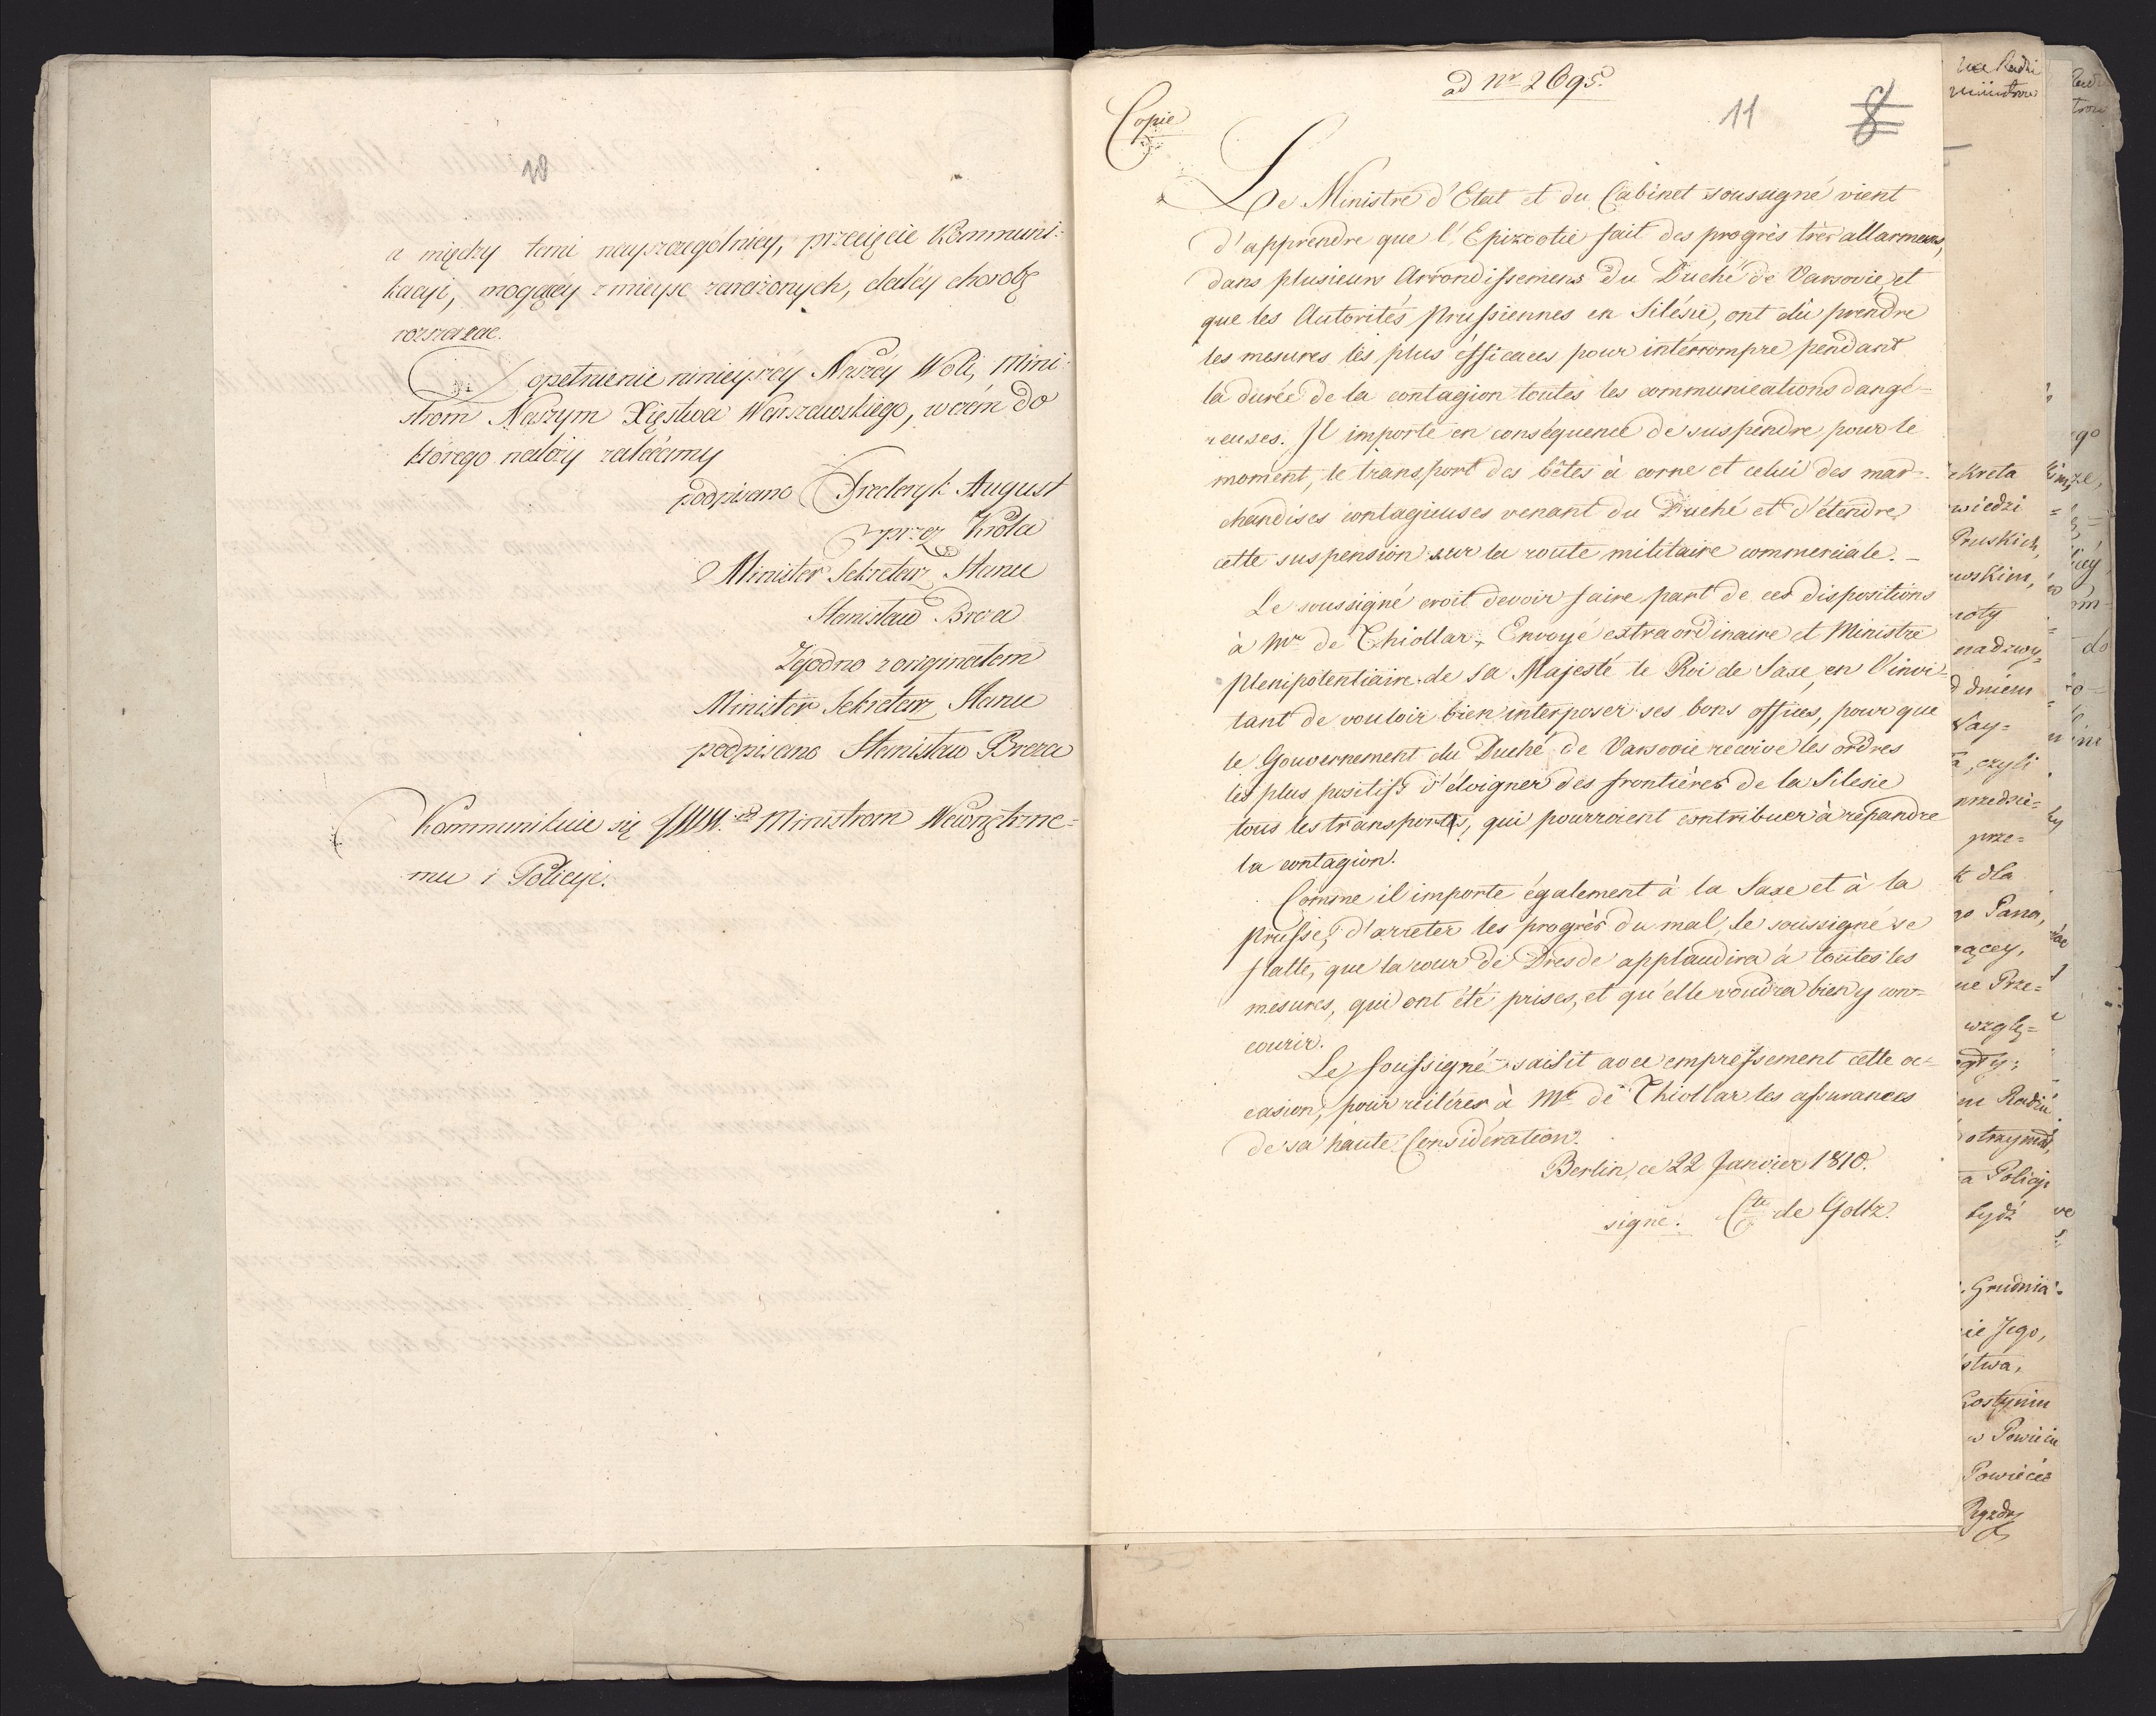 10
a między temi nayszczególniey, przecięcie Kommuni=
kacyi, mogącéy z mieysc zarażonych, daléy chorobę
rozszerzać.
Dopełnienie ninieyszéy Naszéy Woli, Mini=
strom Naszym Xięstwa Warszawskiego, w czém do
którego należy zalecamy
podpisano Frederyk August
przez Króla
Minister Sekretarz Stanu
Stanisław Breza
Zgodno z originałem
Minister Sekretarz Stanu
podpisano Stanisław Breza
Kommunikuie się JWW. Ministrom Wewnętrzne=
mu i Policyi.
ad Nr 2695.
11 8
Copie
Le Ministre d'Etat et du Cabinet soussigné vient
d'apprendre que l'Epizootie fait des progrès très allarmens,
dans plusieurs Arrondissemens du Duché de Varsovie, et
que les Autorités Prussiennes en Silésie, ont dû prendre
les mesures les plus éfficaces pour intérrompre pendant
la durée de la contagion toutes les communications dangé=
reuses. Il importe en conséquence de suspendre pour le
moment, le transport des bêtes à corne et celui des mar=
chandises contagieuses venant du Duché et d'étendre
cette suspension sur la route militaire commerciale. –
Le soussigné croit devoir faire part de ces dispositions
à Mr de Thiollar, Envoyé extraordinaire et Ministre
plenipotentiaire de sa Majesté le Roi de Saxe, en l'invi=
tant de vouloir bien interposer ses bons offices, pour que
le Gouvernement du Duché de Varsovie recoive les ordres
les plus positifs d'éloigner des frontières de la Silesie
tous les transports, qui pourroient contribuer à répandre
la contagion.
Comme il importe également à la Saxe et à la
Prusse, d'arreter les progrès du mal, le soussigné se
flatte, que la cour de Dresde applaudira à toutes les
mesures, qui ont été prises, et qu'elle voudra bien y con=
courir.
Le soussigné saisit avec empressement cette oc=
casion, pour réiterer à Mr de Thiollar les assurances
de sa haute Considération.
Berlin, ce 22 Janvier 1810.
signé. Cte de Goltz.
ekreta
wiedzi
Pruskich,
wskim,
noty
nadzwy=
dniem
Nay=
czyli
przedsię=
prze=
dla
Pana,
Prze=
wzglę=
Radzie
otrzymał,
a Policyi
bydź
Grudnia
Jego,
Gostynin
w Powiecie
Powiecie
Rządz